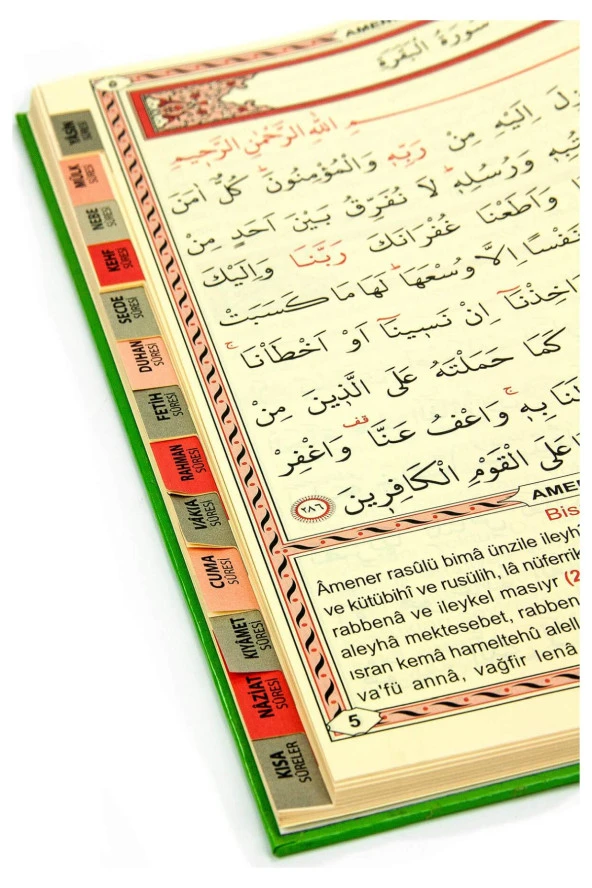 AMENE
سُورَةُ الْبَقَرَةِ
مِ اللّٰهِ الرَّحْمٰنِ الرَّحٖيمِ
زِلَ اِلَيْهِ مِنْ رَبِّهٖ وَالْمُؤْمِنُونَ كُلٌّ اٰمَنَ
تُبِهٖ وَرُسُلِهٖ لَا نُفَرِّقُ بَيْنَ اَحَدٍ مِنْ
ا وَاَطَعْنَا غُفْرَانَكَ رَبَّنَا وَاِلَيْكَ
نَفْسًا اِلَّا وُسْعَهَا لَهَا مَا كَسَبَتْ
اخِذْنَٓا اِنْ نَسٖينَٓا اَوْ اَخْطَاْنَا
كَمَا حَمَلْتَهُ عَلَى الَّذٖينَ مِنْ
لَنَا بِهٖ وَاعْفُ عَنَّا وَاغْفِرْ
ا عَلَى الْقَوْمِ الْكَافِرٖينَ ٢٨٦
AMEN
Bis
Âmener rasûlü bimâ ünzile ileyh
ve kütübihî ve rusülih, lâ nüferrik
rabbenâ ve ileykel masıyr (2
aleyhâ mektesebet, rabben
ısran kemâ hameltehû alell
va'fü annâ, vağfir lenâ
5
YÂSÎN SÛRESİ
MÜLK SÛRESİ
NEBE SÛRESİ
KEHF SÛRESİ
SECDE SÛRESİ
DUHAN SÛRESİ
FETİH SÛRESİ
RAHMAN SÛRESİ
VÂKIA SÛRESİ
CUMA SÛRESİ
KIYÂMET SÛRESİ
NÂZİAT SÛRESİ
KISA SÛRELER